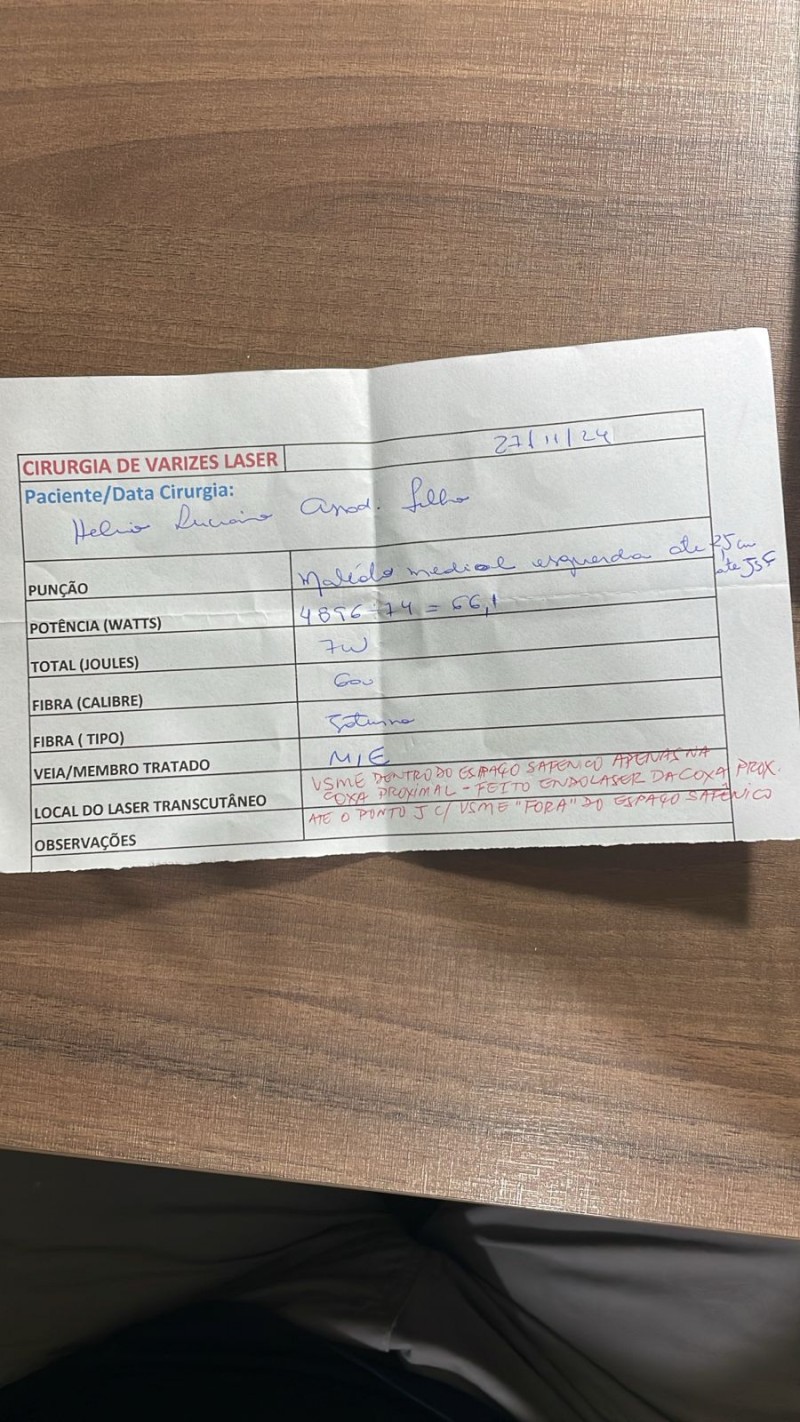 27/11/24
CIRURGIA DE VARIZES LASER
Paciente/Data Cirurgia:
Helio Luciano Filho
PUNÇÃO Maléolo medial esquerda até 2,5 cm
até JSF
POTÊNCIA (WATTS) 4896÷74 = 66,1
TOTAL (JOULES) 7W
FIBRA (CALIBRE) 600
FIBRA ( TIPO)
VEIA/MEMBRO TRATADO MIE
LOCAL DO LASER TRANSCUTÂNEO VSME DENTRO DO ESPAÇO SAFENICO APENAS NA
COXA PROXIMAL - FEITO ENDOLASER DA COXA PROX.
OBSERVAÇÕES ATÉ O PONTO J C/ VSME "FORA" DO ESPAÇO SAFÊNICO